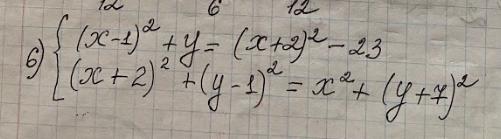 12 6 12
б) { (x-1)² + y = (x+2)² - 23
(x+2)² + (y-1)² = x² + (y+7)²